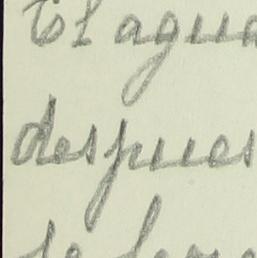 El agua
despues
se